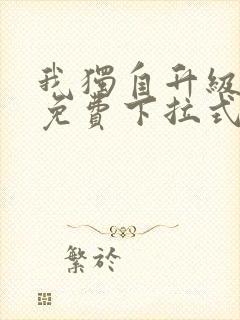 我獨自升級
免費下拉式
繁於